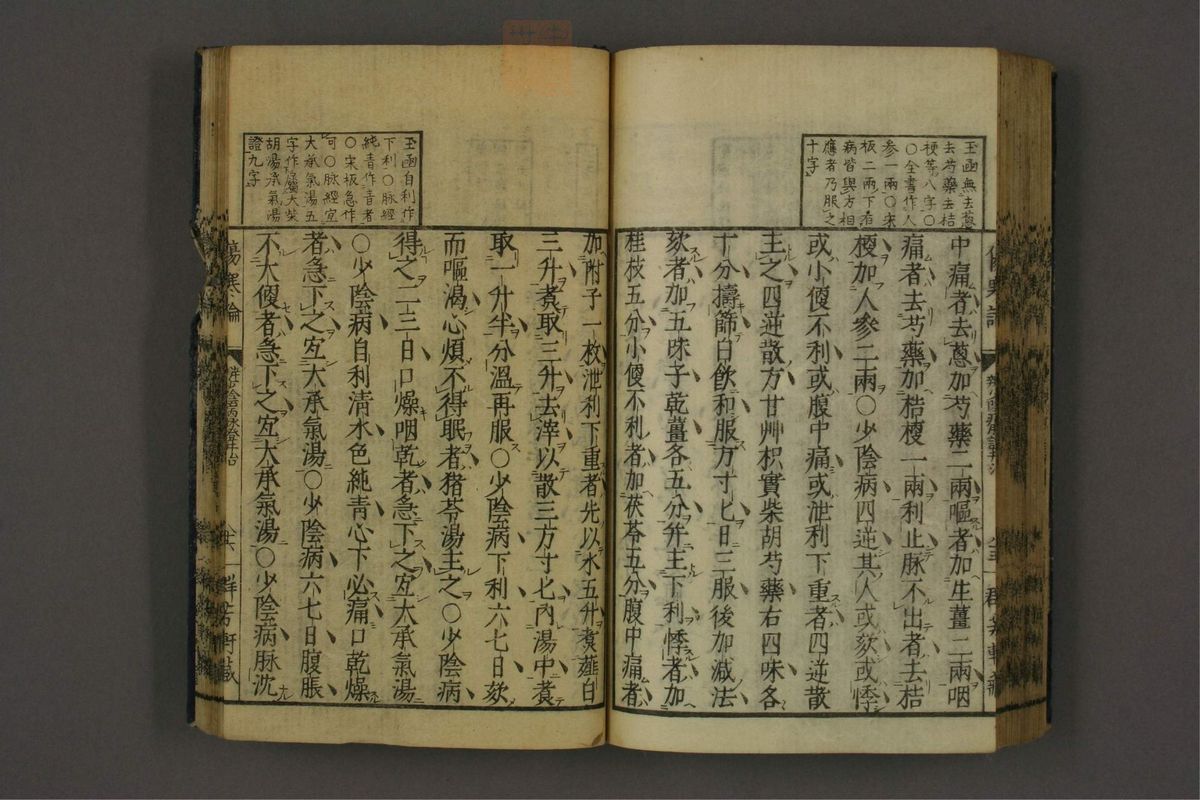 玉函無去葱
去芍藥去桔
梗等八字〇
〇全書作人
參一兩〇宋
板二兩下有
病皆與方相
應者乃服之
十字
中痛者去葱加芍藥二兩嘔者加生薑二兩咽
痛者去芍藥加桔梗一兩利止脉不出者去桔
梗加人參二兩〇少陰病四逆其人或欬或悸
或小便不利或腹中痛或泄利下重者四逆散
主之四逆散方甘艸枳實柴胡芍藥右四味各
十分擣篩白飲和服方寸匕日三服後加減法
欬者加五味子乾薑各五分并主下利悸者加
桂枝五分小便不利者加茯苓五分腹中痛者
玉函自利作
下利〇脉經
純青作青者
〇宋板急作
可〇脉經宜
大承氣湯五
字作屬大柴
胡湯承氣湯
證九字
加附子一枚泄利下重者先以水五升煑薤白
三升煑取三升去滓以散三方寸匕內湯中煑
取一升半分溫再服〇少陰病下利六七日欬
而嘔渴心煩不得眠者猪苓湯主之〇少陰病
得之二三日口燥咽乾者急下之宜大承氣湯
〇少陰病自利清水色純青心下必痛口乾燥
者急下之宜大承氣湯〇少陰病六七日腹脹
不大便者急下之宜大承氣湯〇少陰病脉沈
傷寒論